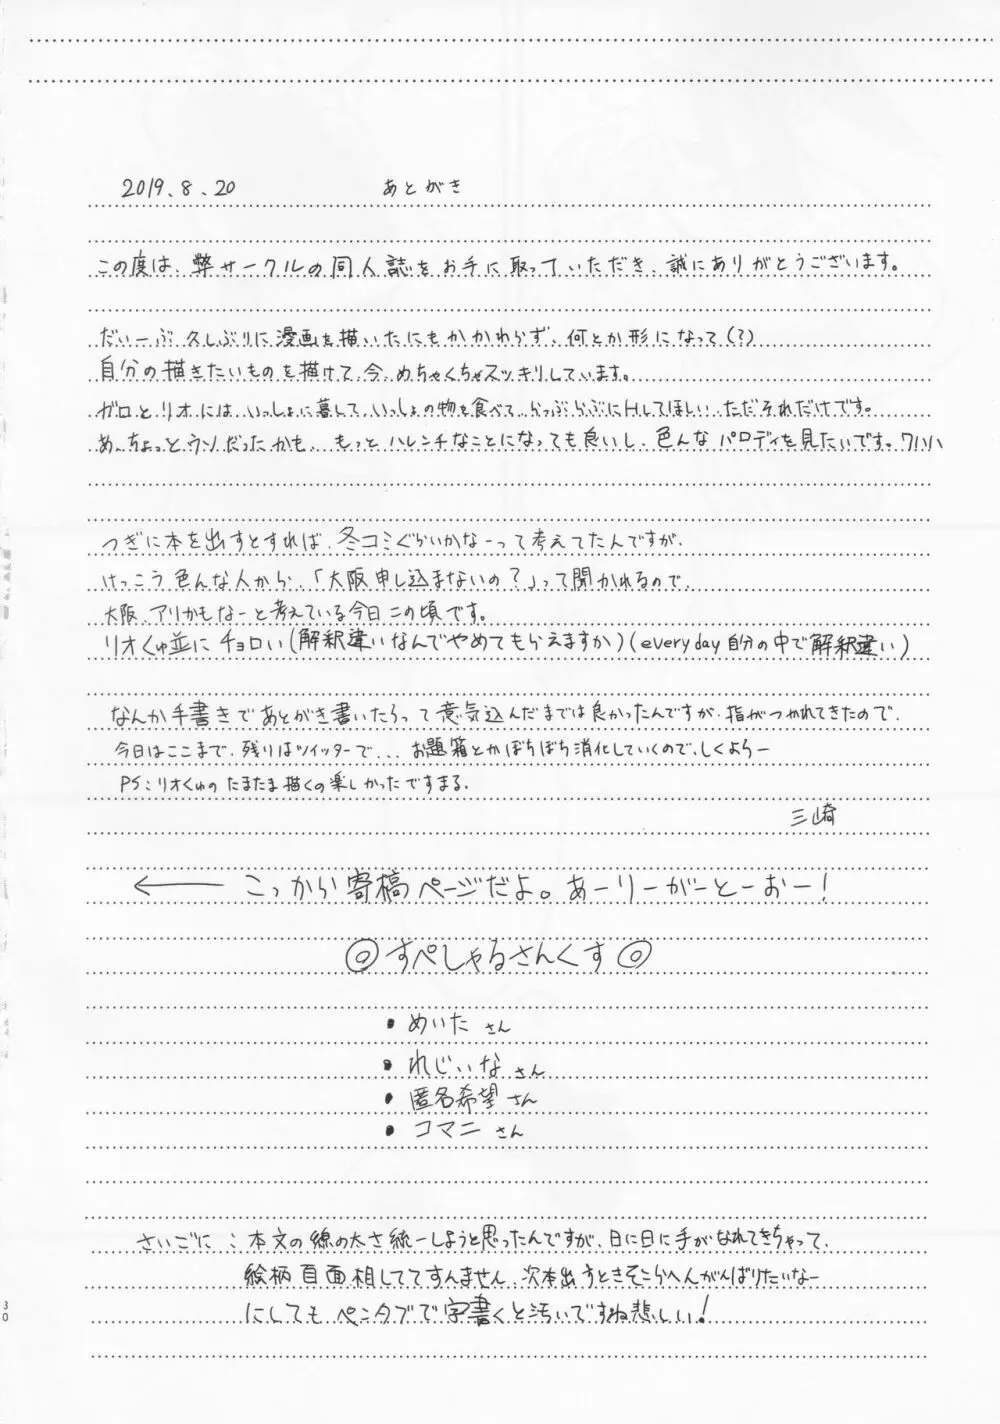 2019.8.20 あとがき
この度は、弊サークルの同人誌をお手に取っていただき、誠にありがとうございます。
だいーぶ久しぶりに漫画を描いたにもかかわらず、何とか形になって(?)
自分の描きたいものを描けて、今、めちゃくちゃスッキリしています。
ガロとリオには、いっしょに暮して、いっしょの物を食べて、らっぶらぶにHしてほしい、ただそれだけです。
あ、ちょっとウソだったかも、もっとハレンチなことになっても良いし、色んなパロディを見たいです。ワハハ
つぎに本を出すとすれば、冬コミぐらいかなーって考えてたんですが、
けっこう色んな人から、「大阪申し込まないの?」って聞かれるので、
大阪、アリかもなーと考えている今日この頃です。
リオくゅ並にチョロい(解釈違いなんでやめてもらえますか)(everyday自分の中で解釈違い)
なんか手書きであとがき書いたろって意気込んだまでは良かったんですが、指がつかれてきたので、
今日はここまで、残りはツイッターで... お題箱とかぼちぼち消化していくので、しくよろー
PS:リオくゅのたまたま描くの楽しかったですまる。
三崎
← こっから寄稿ページだよ。あーりーがーとーおー!
◎すぺしゃるさんくす◎
・めいたさん
・れじぃなさん
・匿名希望さん
・コマニさん
さいごに:本文の線の太さ統一しようと思ったんですが、日に日に手がなれてきちゃって、
絵柄百面相しててすんません、次本出すときそこらへんがんばりたいなー
にしてもペンタブで字書くと汚いですね悲しい!
30